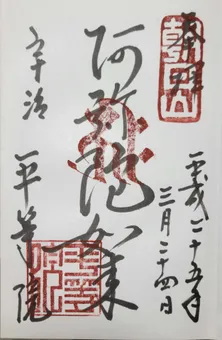 奉拝
平成二十五年
三月二十四日
阿弥陀如来
宇治
平等院
朝日山